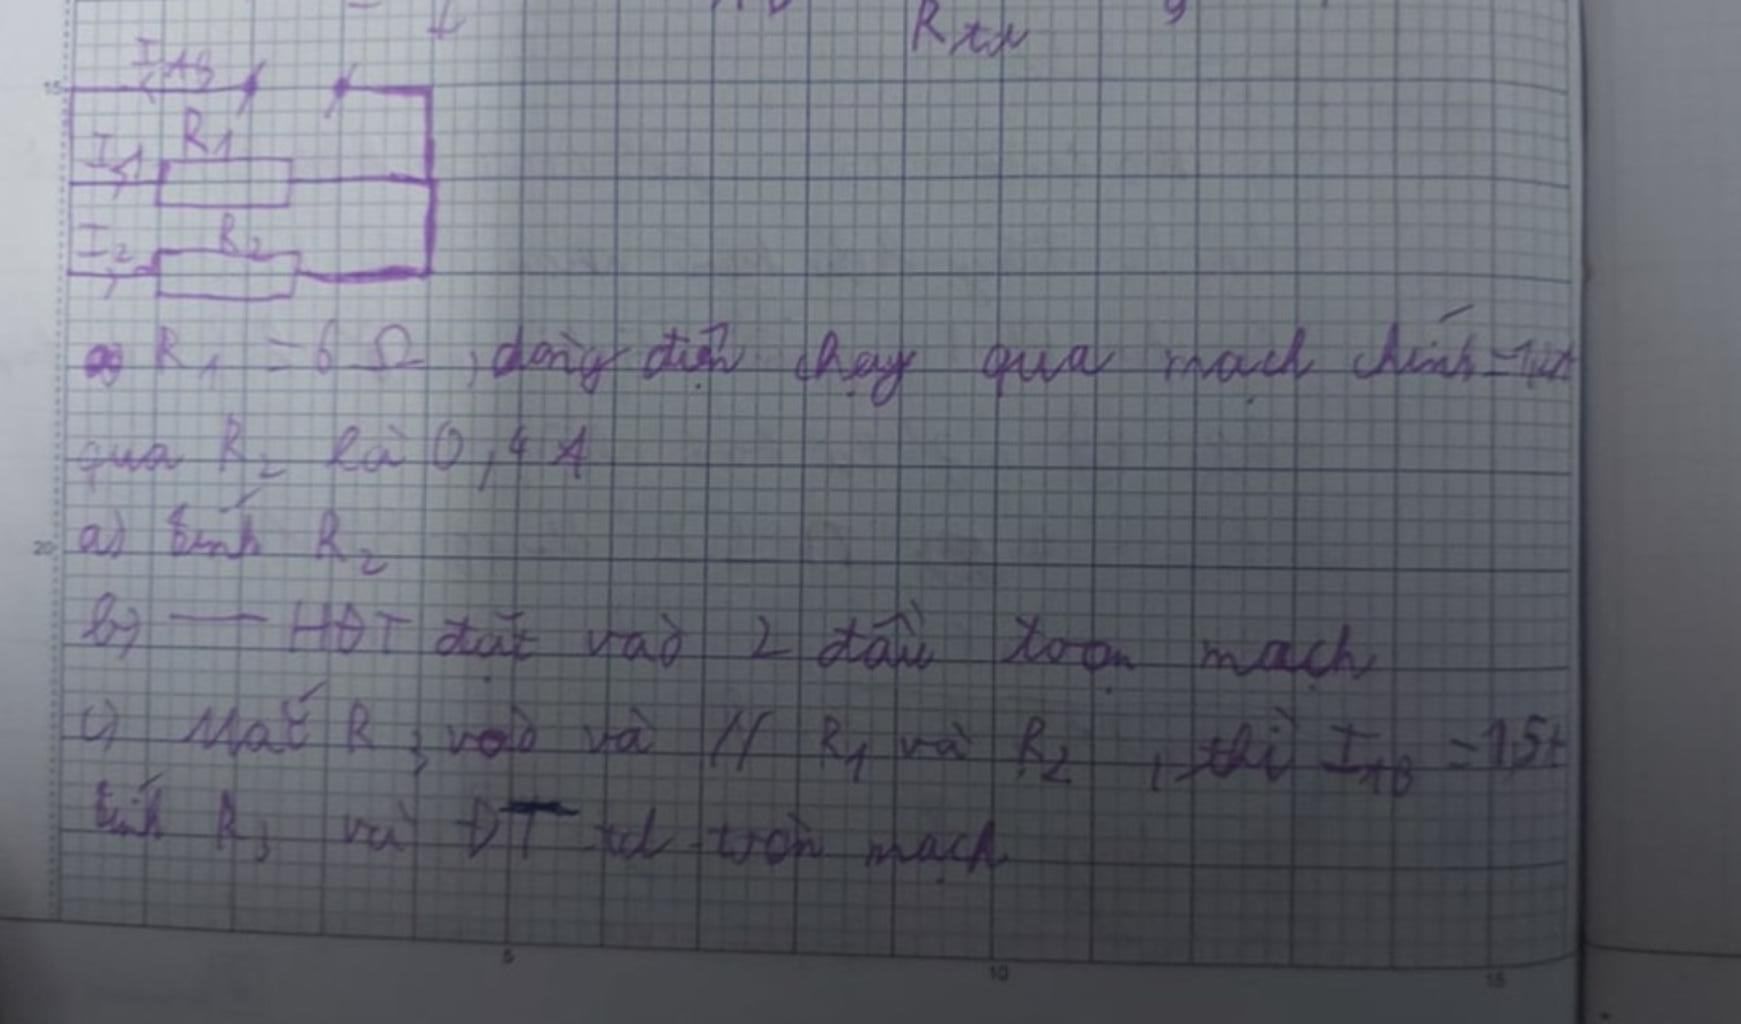 R
15
I AB
R1
I1
R2
I2
R1 = 6 Ω, dòng điện chạy qua mạch chính =
qua R2 là 0,4 A
20 a) tính R2
b) — HĐT đặt vào 2 đầu đoạn mạch
c) Mắc R3 vào và // R1 và R2, thì I AB =
tính R3 và ĐT tđ toàn mạch
5 10 15